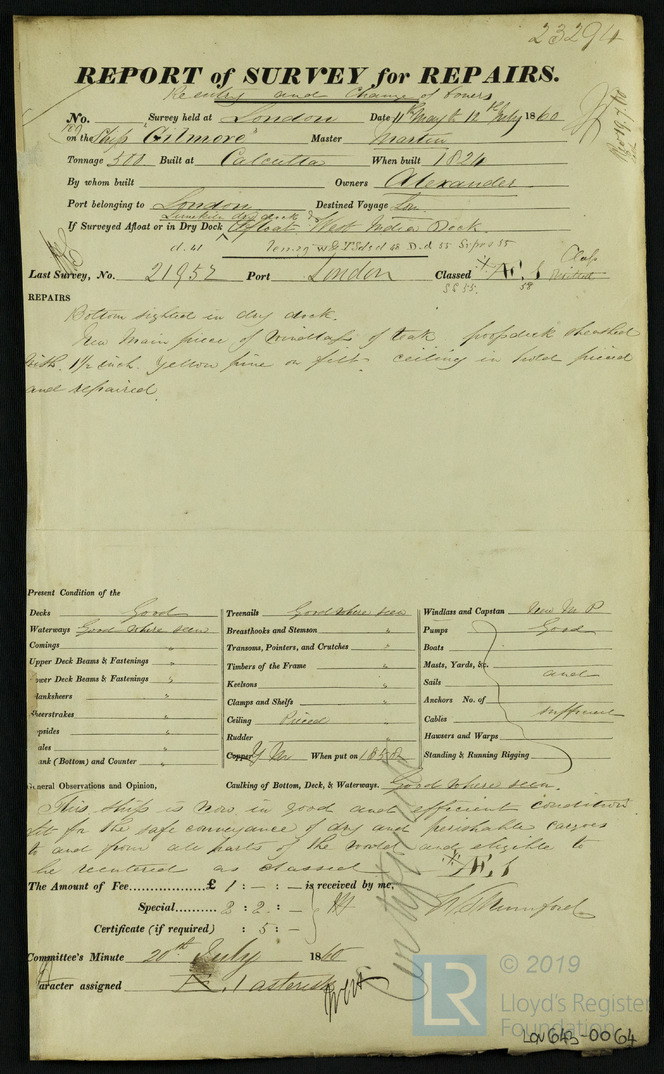 23294
REPORT of SURVEY for REPAIRS.
Reentry and Change of owners
No. Survey held at London Date 11th May to 12th July 1860
on the Ship "Gilmore" Master Martin
Rec 19.7.60
Tonnage 500 Built at Calcutta When built 1824
By whom built Owners Alexander
Port belonging to London Destined Voyage Lon.
Limekiln dry dock &
If Surveyed Afloat or in Dry Dock Afloat West India Dock.
Last Survey, No. 21952 Port London Classed Æ 1
SS 55. 58
REPAIRS
Bottom sighted in dry dock.
New Main piece of windlass of teak poopdeck sheathed
with 1½ inch yellow pine on felt. ceiling in hold pieced
and repaired.
Present Condition of the
Decks Good
Waterways Good where seen
Comings "
Upper Deck Beams & Fastenings "
ower Deck Beams & Fastenings "
lanksheers "
heerstrakes "
psides "
ales "
ank (Bottom) and Counter "
Treenails Good where seen
Breasthooks and Stemson "
Transoms, Pointers, and Crutches "
Timbers of the Frame "
Keelsons "
Clamps and Shelfs "
Ceiling Pieced
Rudder
Copper Y M When put on 1858
Windlass and Capstan New M P
Pumps Good
Boats
Masts, Yards, &c.
Sails and
Anchors No. of
Cables sufficient
Hawsers and Warps
Standing & Running Rigging
General Observations and Opinion, Caulking of Bottom, Deck, & Waterways. Good where seen.
This ship is now in good and efficient condition
fit for the safe conveyance of dry and perishable cargoes
to and from all parts of the world and eligible to
be reentered as classed Æ 1
The Amount of Fee £ 1 : — : — is received by me,
Special 2 : 2 : —
Certificate (if required) : 5 : —
Committee's Minute 20th July 1860
aracter assigned Æ. 1 asterisk
© 2019
LR
Lloyd's Register
Foundation
LON643-0064